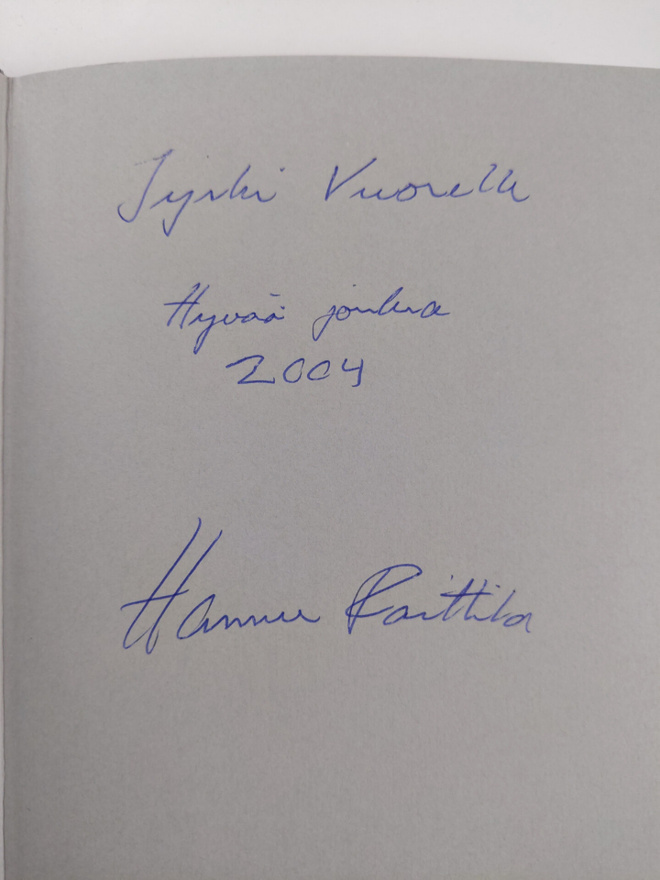 Jyrki Vuorelle
Hyvää joulua
2004
Hannu Raittila